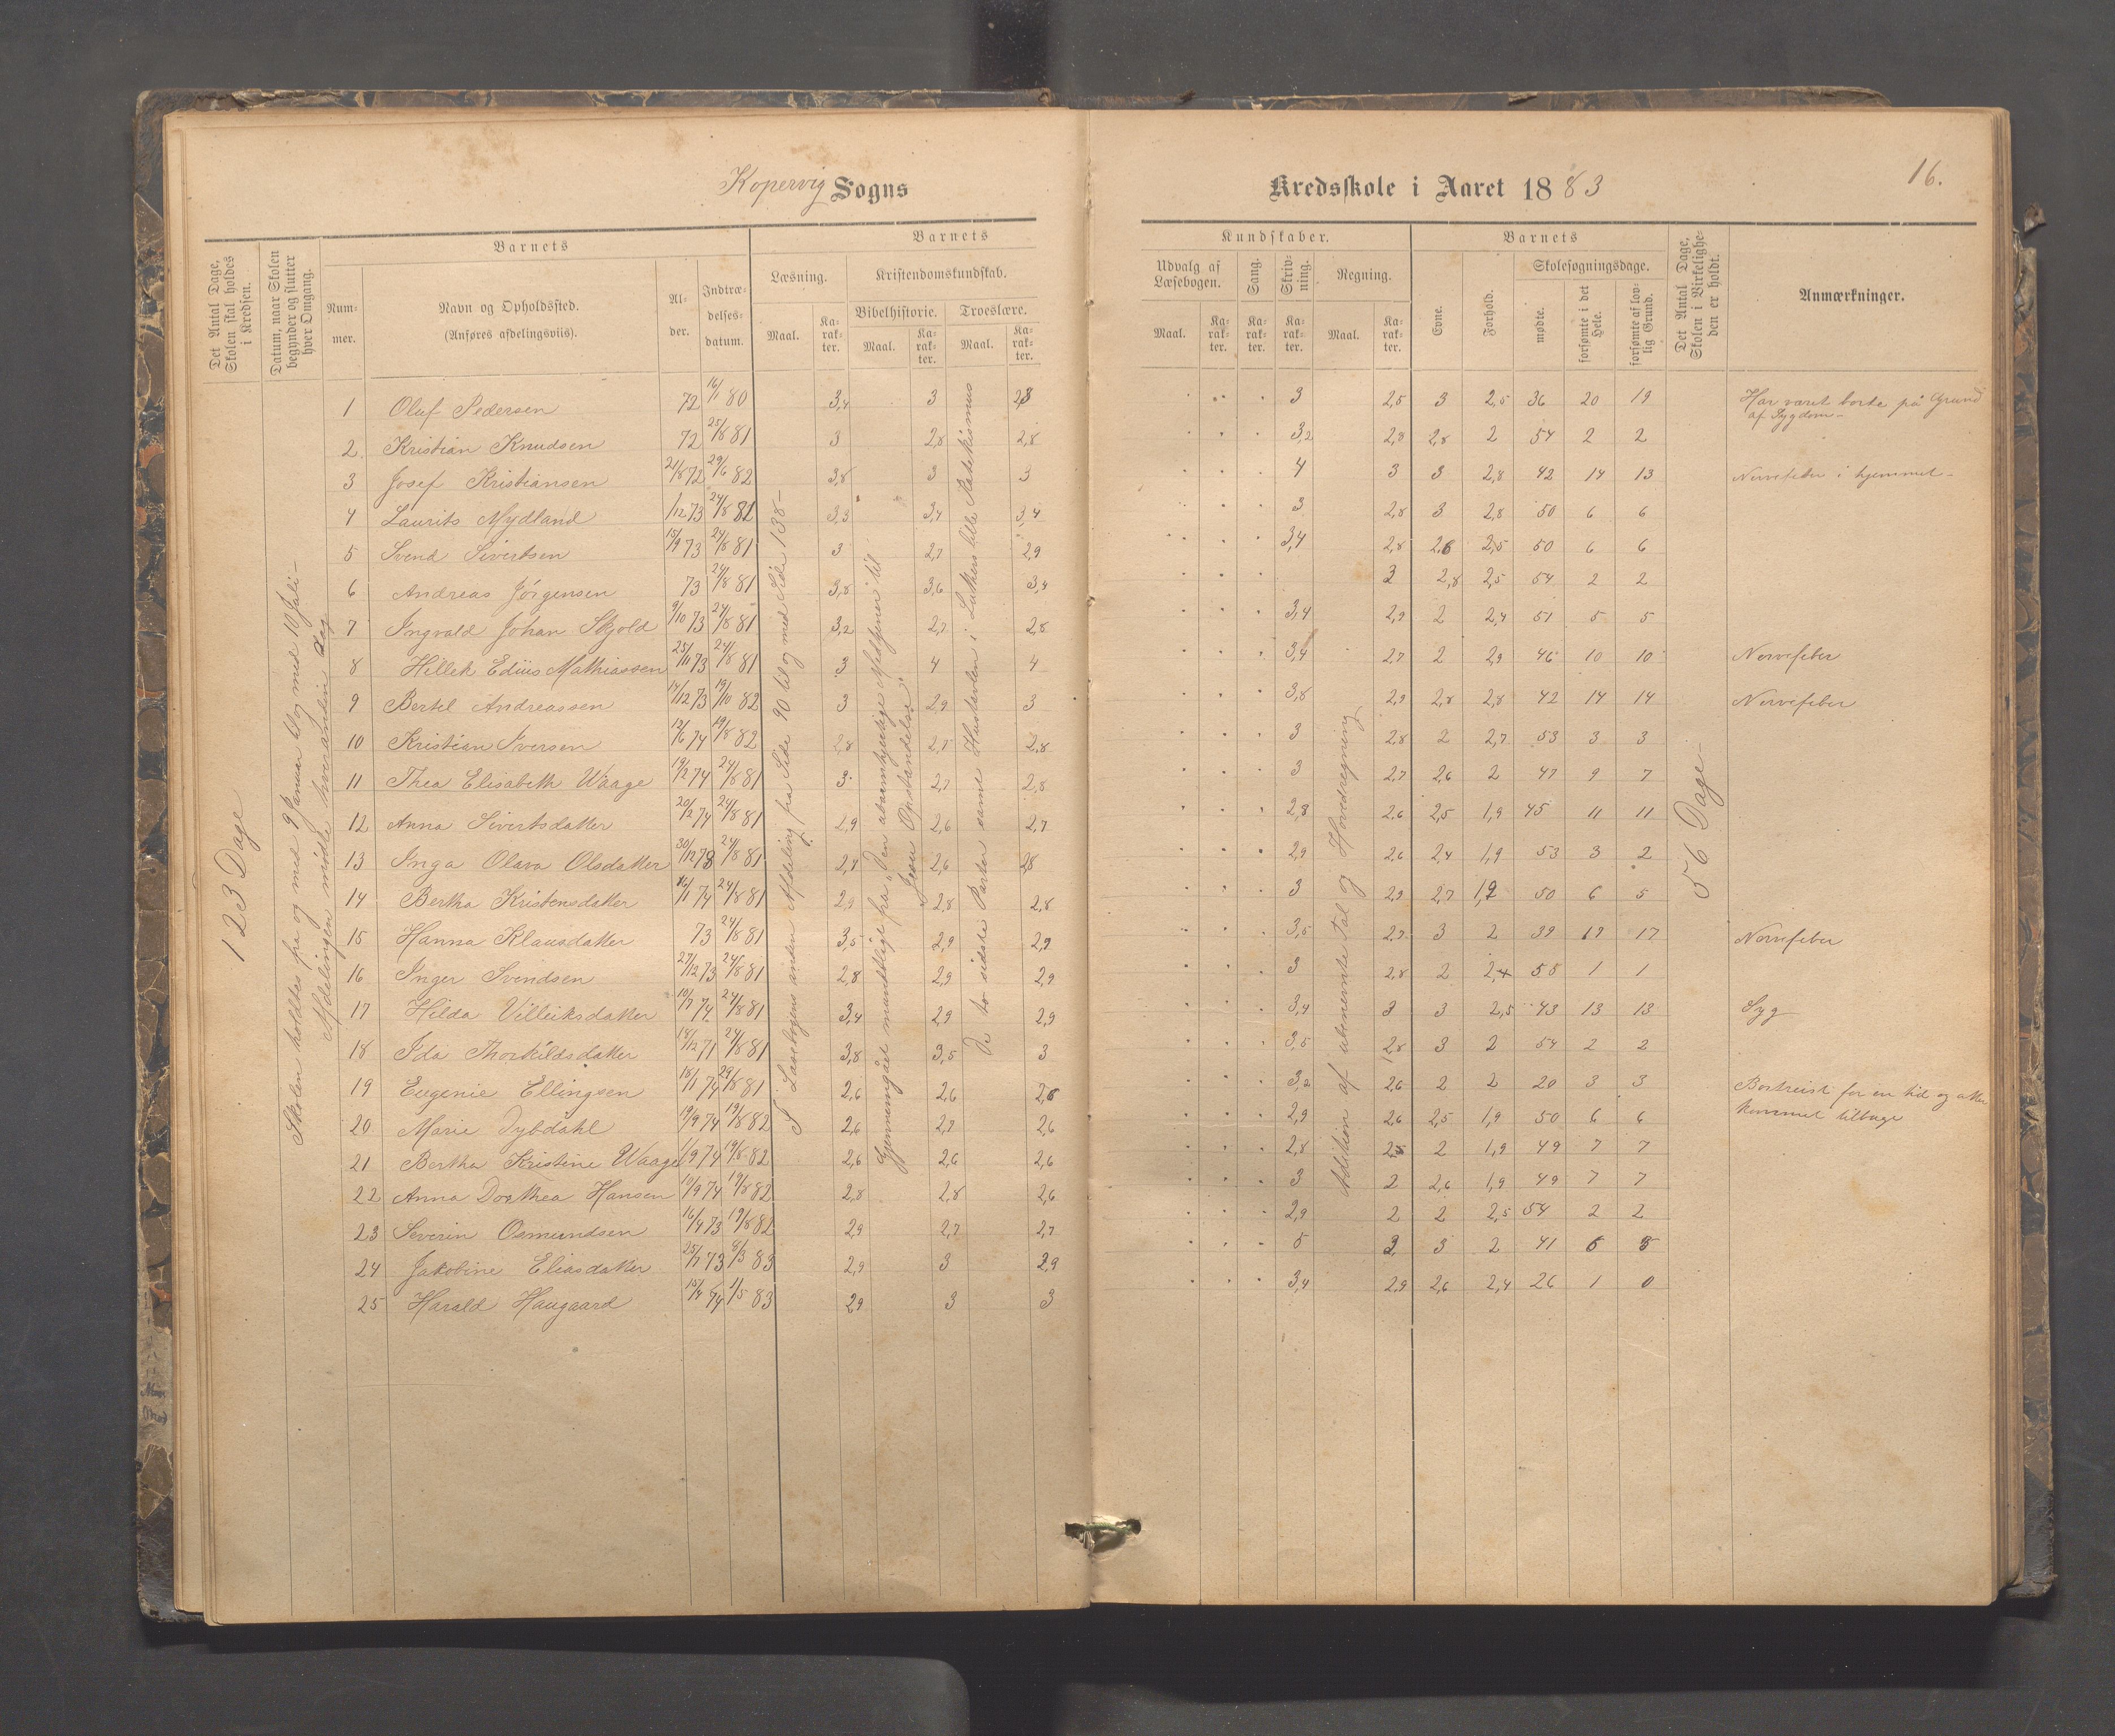 Kopervig Sogns
Kredsskole i Aaret 1883
16.
Det Antal Dage, Skolen skal holdes i Kredsen.
Datum, naar Skolen begynder og slutter hver Omgang.
Barnets
Num-mer.
Navn og Opholdssted.
(Anføres afdelingsviis).
Al-der.
Indtræ-delses-datum.
Barnets
Læsning.
Maal.
Ka-rak-ter.
Kristendomskundskab.
Bibelhistorie.
Maal.
Ka-rak-ter.
Troeslære.
Maal.
Ka-rak-ter.
Kundskaber.
Udvalg af Læsebogen.
Maal.
Ka-rak-ter.
Sang.
Ka-rak-ter.
Skriv-ning.
Ka-rak-ter.
Regning.
Maal.
Ka-rak-ter.
Barnets
Evne.
Forhold.
Skolesøgningsdage.
mødte.
forsømte i det Hele.
forsømte af lov-lig Grund.
Det Antal Dage, Skolen i Virkelighe-den er holdt.
Anmærkninger.
123 Dage
Skolen holdtes fra og med 9 Januar til og med 10 Juli –
Afdelingen mødte hver anden Dag
I Læsebogens anden Afdeling fra Side 90 til og med Side 138 –
Gjennemgået mundtligt fra "Den ubarmhjertige Medtjener" til
Jesu Opstandelse"
De to sidste Parter samt Hustavlen i Luthers lille Katekismus
Addition af ubenevnte Tal og Hovedregning
56 Dage –
1 Oluf Pedersen 72 16/11 80 3,4 3 2,8 3 2,5 3 2,5 36 20 19 Har været borte på Grund
af Sygdom –
2. Kristian Knudsen 72 25/8 81 3 2,8 2,8 3,2 2,8 2,8 2 54 2 2
3 Josef Kristiansen 21/8 72 29/6 82 3,8 3 3 4 3 3 2,8 42 14 13 Nervefeber i hjemmet –
4 Laurits Mydland /12 73 24/8 81 3,3 3,4 3,4 3 2,8 3 2,8 50 6 6
5 Svend Sivertsen 15/9 73 24/8 81 3 2,7 2,9 3,4 2,8 2,6 2,5 50 6 6
6 Andreas Jörgensen 73 24/8 81 3,8 3,6 3,4 3 2,8 2,5 54 2 2
7 Ingvald Johan Skjold 9/10 73 24/8 81 3,2 2,7 2,8 3,4 2,9 2 2,4 51 5 5
8 Hillek Edius Mathiassen 25/11 73 24/8 81 3 4 4 3,4 2,7 2 2,9 46 10 10 Nervefeber
9 Bertel Andreassen 14/12 73 19/10 82 3 2,9 3 3,8 2,9 2,8 2,8 42 14 14 Nervefeber
10 Kristian Iversen 12/6 74 19/8 82 2,8 2,7 2,8 3 2,8 2 2,7 53 3 3
11 Thea Elisabeth Waage 19/2 74 24/8 81 3 2,7 2,8 3 2,7 2,6 2 47 9 7
12 Anna Sivertsdatter 20/2 74 24/8 81 2,9 2,6 2,7 2,8 2,6 2,5 1,9 45 11 11
13 Inga Olava Olsdatter 30/12 73 24/8 81 2,7 2,6 2,8 2,9 2,6 2,4 1,9 53 3 2
14 Bertha Kristensdatter 16/1 74 24/8 81 2,9 2,8 2,8 3 2,9 2,7 1,9 50 6 5
15 Hanna Klausdatter 73 24/8 81 3,5 2,9 2,9 3,5 2,7 3 2 39 17 17 Nervefeber
16 Inger Svendsen 27/12 73 24/8 81 2,8 2,9 2,9 3 2,8 2 2,4 55 1 1
17 Hilda Villeiksdatter 10/7 74 24/8 81 3,4 2,9 2,9 3,4 3 3 2,5 43 13 13 Syg
18 Ida Thorkildsdatter 18/12 71 24/8 81 3,8 3,5 3 3,5 2,8 3 2 54 2 2
19 Eugenie Ellingsen 18/1 74 29/8 81 2,6 2,6 2,6 3,2 2,6 2 2 20 3 3 Bortreist for en tid og atter
kommet tilbage
20 Marie Dybdahl 19/9 74 19/8 82 2,6 2,7 2,6 2,9 2,6 2,5 1,9 50 6 6
21 Bertha Kristine Waage 1/9 74 19/8 82 2,6 2,6 2,6 2,8 2,5 2 1,9 49 7 7
22 Anna Dorthea Hansen 10/9 74 19/8 82 2,8 2,8 2,6 3 2 2,6 1,9 49 7 7
23 Severin Osmundsen 16/4 73 19/8 82 2,9 2,7 2,7 2,9 2 2 2,5 54 2 2
24 Jakobine Eliasdatter 25/7 73 8/3 83 2,9 3 2,9 5 3 3 2 41 5 5
25 Harald Haugaard 15/4 74 1/5 83 2,9 3 3 3,4 2,9 2,6 2,4 26 1 0